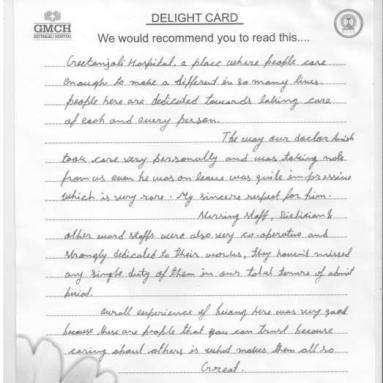 GMCH
GEETANJALI HOSPITAL
DELIGHT CARD
We would recommend you to read this....
Geetanjali Hospital, a place where people care
enough to make a different in so many lives
people here are dedicated towards taking care
of each and every person.
The way our doctor
took care very personally and was taking note
from us even he was on leave was quite impressive
which is very rare. My sincere respect for him.
Nursing staff, Dietician &
other ward staffs were also very co-operative and
strongly dedicated to their works, they havin't missed
any single duty of them in our total tenure of admit
period.
Overall experience of being here was very good
because there are people that you can trust because
caring about others is what makes them all so
Great.